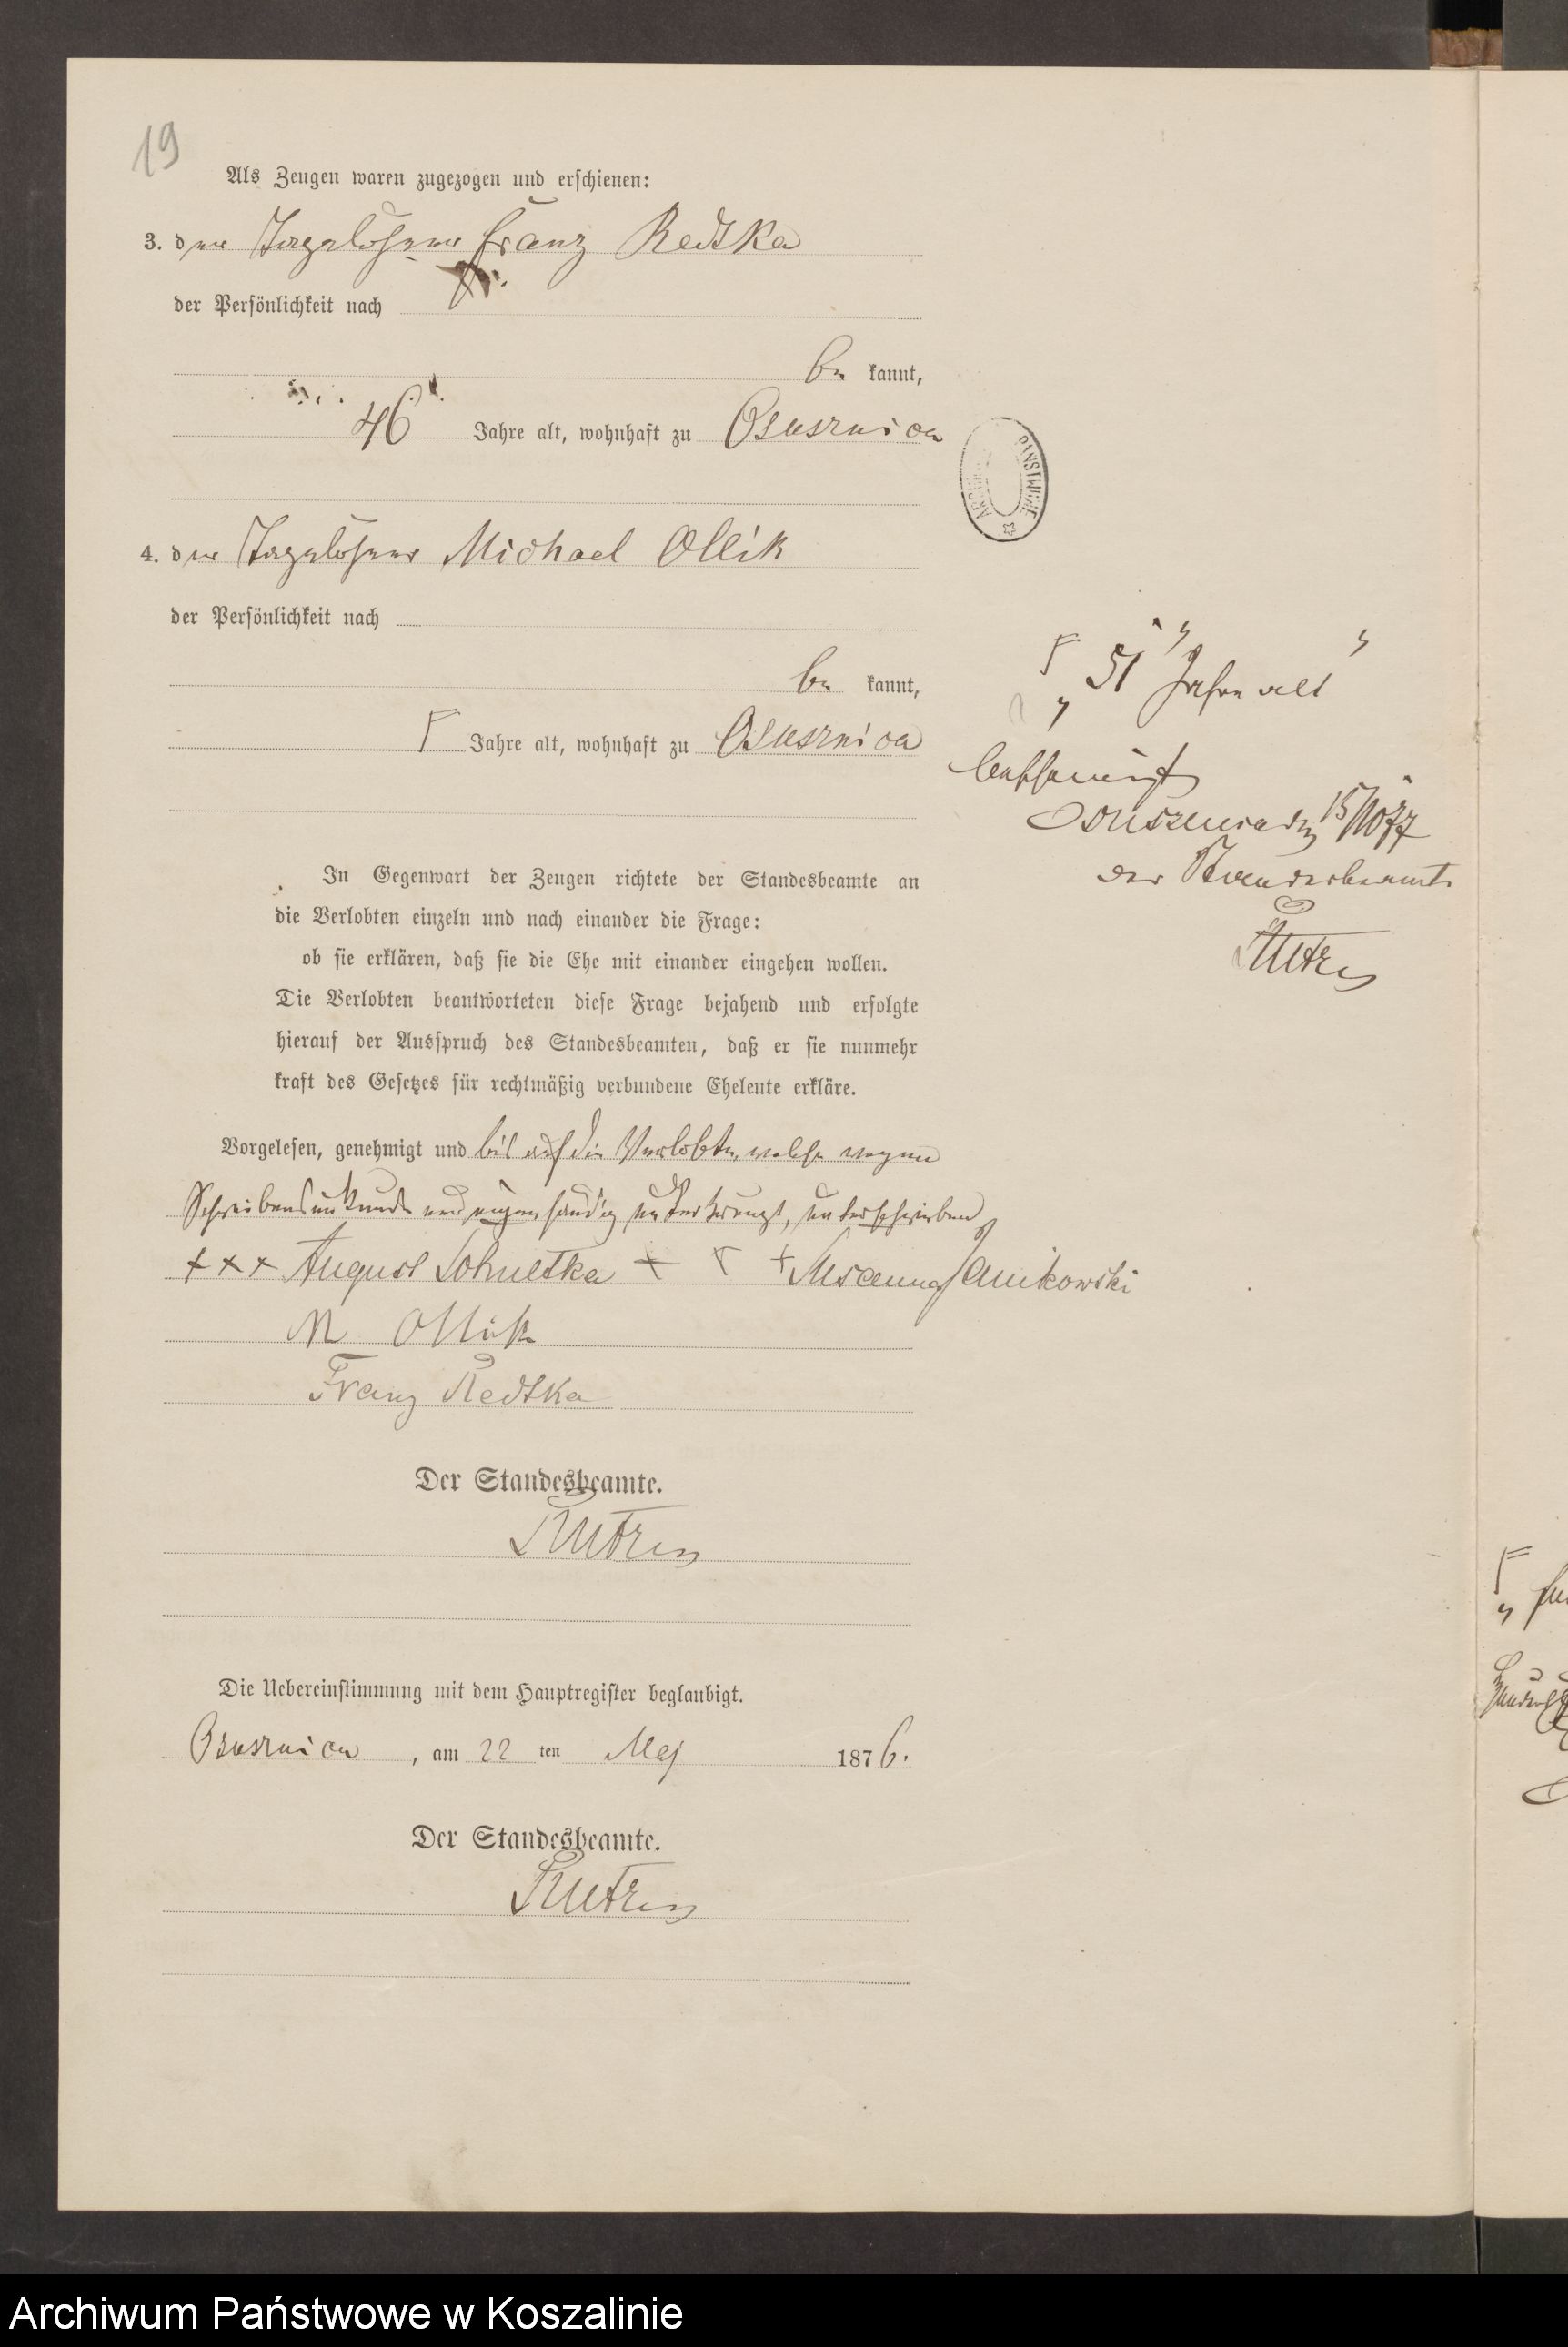 19
Als Zeugen waren zugezogen und erschienen:
3. der Tagelöhner Franz Redtka
der Persönlichkeit nach
be kannt,
46 Jahre alt, wohnhaft zu Osusznica
4. der Tagelöhner Michael Ollik
der Persönlichkeit nach
be kannt,
Jahre alt, wohnhaft zu Osusznica
„51 Jahre alt"
15/10 77
der Standesbeamte
In Gegenwart der Zeugen richtete der Standesbeamte an
die Verlobten einzeln und nach einander die Frage:
ob sie erklären, daß sie die Ehe mit einander eingehen wollen.
Die Verlobten beantworteten diese Frage bejahend und erfolgte
hierauf der Ausspruch des Standesbeamten, daß er sie nunmehr
kraft des Gesetzes für rechtmäßig verbundene Eheleute erkläre.
Vorgelesen, genehmigt und bis auf die Verlobten, welche wegen
Schreibensunkunde nur eigenhändig unterkreuzt, unterschrieben
+++ August + + + Janikowski
M Ollik
Franz Redtka
Der Standesbeamte.
Die Uebereinstimmung mit dem Hauptregister beglaubigt.
Osusznica, am 22 ten Maj 1876.
Der Standesbeamte.
Archiwum Państwowe w Koszalinie